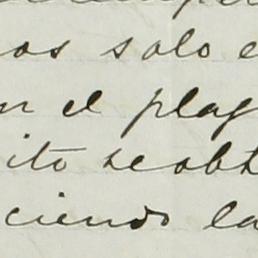 os solo e
n el plag
ito se obt
ciendo la